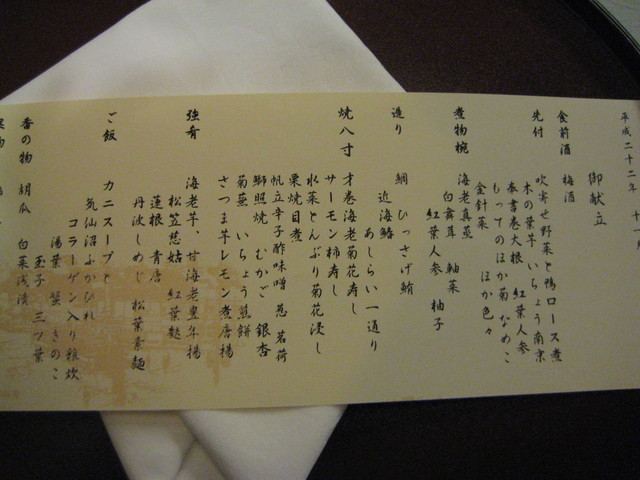 平成二十二年
御献立
食前酒 梅酒
先付 吹寄せ野菜と鴨ロース煮
木の葉芋 いちょう南京
奉書巻大根 紅葉人参
もってのほか菊 なめこ
金針菜 ほか色々
煮物椀 海老真蒸
白舞茸 軸菜
紅葉人参 柚子
造り 鯛 ひっさげ鮪
近海鰭
あしらい一通り
焼八寸 才巻海老菊花寿し
サーモン柿寿し
水菜とんぶり菊花浸し
栗焼目煮
帆立辛子酢味噌 葱 茗荷
鰤照焼 むかご 銀杏
菊蕪 いちょう煎餅
さつま芋レモン煮唐揚
強肴 海老芋、甘海老豊年揚
松笠慈姑 紅葉麩
蓮根 青唐
丹波しめじ 松葉素麺
ご飯 カニスープと
気仙沼ふかひれ
コラーゲン入り雑炊
湯葉 蟹 きのこ
玉子 三ツ葉
香の物 胡瓜 白菜浅漬